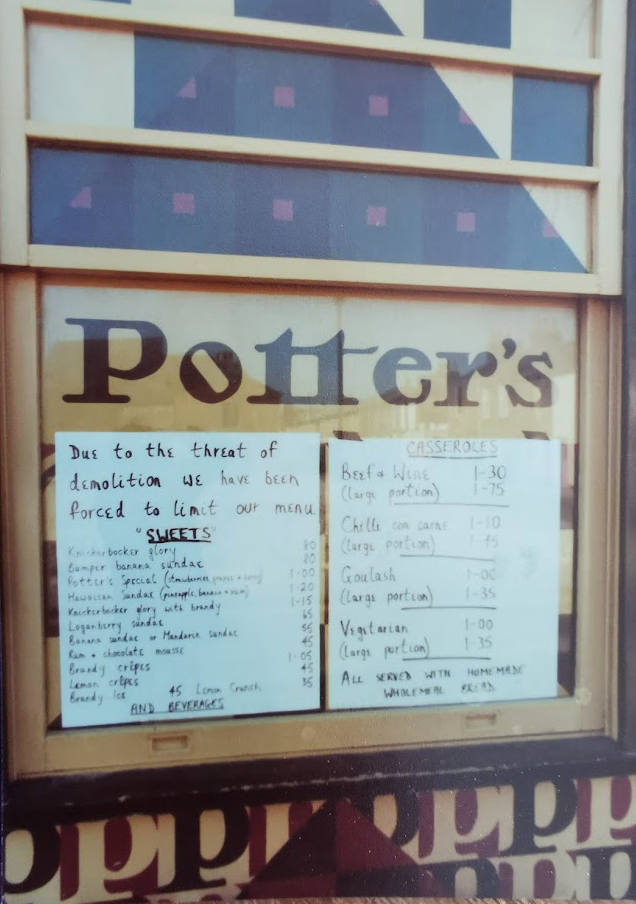 Potter's
Due to the threat of
demolition we have been
forced to limit our menu.
"SWEETS"
Knickerbocker glory 80
Bumper banana sundae 80
Potter's Special (strawberries, 1-00
Hawaiian Sundae (pineapple, banana + rum) 1-20
Knickerbocker glory with brandy 1-15
Loganberry sundae 65
Banana sundae or Mandarin sundae 55
Rum + chocolate mousse 45
Brandy crêpes 1-05
Lemon crêpes 45
Brandy Ice 45 Lemon Crunch 35
AND BEVERAGES
CASSEROLES
Beef & Wine 1-30
(large portion) 1-75
Chilli con carne 1-10
(large portion) 1-45
Goulash 1-00
(large portion) 1-35
Vegetarian 1-00
(large portion) 1-35
ALL SERVED WITH HOMEMADE
WHOLEMEAL BREAD
pppppppp